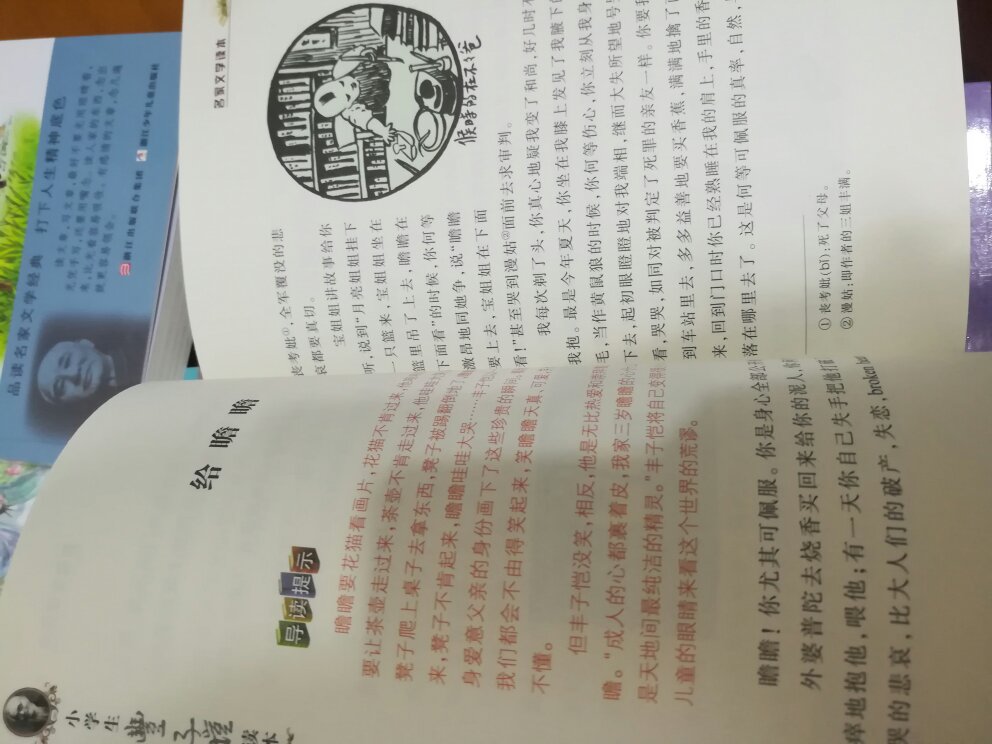 小学生
丰子恺
读本
给瞻瞻
导读提示
瞻瞻要花猫看画片，花猫不肯过来，他
要让茶壶走过来，茶壶不肯走过来，他哇哇
凳子爬上桌子去拿东西，凳子被踢翻倒
来，凳子不肯起来，瞻瞻哇哇大哭……丰子恺
身爱意父亲的身份画下了这些珍贵的瞬间
我们都会不由得笑起来，笑瞻瞻天真、可爱
不懂。
但丰子恺没笑，相反，他是无比热爱和
瞻。“成人的心都裹着皮，我家三岁瞻瞻的心
是天地间最纯洁的精灵。”丰子恺将自己变得
儿童的眼睛来看这个世界的荒谬。
瞻瞻！你尤其可佩服。你是身心全部公
外婆普陀去烧香买回来给你的泥人，你
瘁地抱他，喂他；有一天你自己失手把他打
哭的悲哀，比大人们的破产，失恋，broken
名家文学读本
瞻瞻的车
爸爸不在的时候
丧考妣①，全军覆没的悲
哀都要真切。
宝姐姐讲故事给你
听，说到“月亮姐姐挂下
一只篮来，宝姐姐坐在
篮里吊了上去，瞻瞻在
下面看”的时候，你何等
激昂地同她争，说“瞻瞻
要上去，宝姐姐在下面
看！”甚至哭到漫姑②面前去求审判。
我每次剃了头，你真心地疑我变了和尚，好几时不
我抱。最是今年夏天，你坐在我膝上发见了我腋下的
毛，当作黄鼠狼的时候，你何等伤心，你立刻从我身
下去，起初眼瞪瞪地对我端相，继而大失所望地号
看，哭哭，如同对被判定了死罪的亲友一样。你要我
到车站里去，多多益善地要买香蕉，满满地擒了
来，回到门口时你已经熟睡在我的肩上，手里的香
落在哪里去了。这是何等可佩服的真率，自然，
①丧考妣(bǐ)：死了父母。
②漫姑：即作者的三姐丰满。
品读名家文学经典　打下人生精神底色
浙江出版联合集团
浙江少年儿童出版社